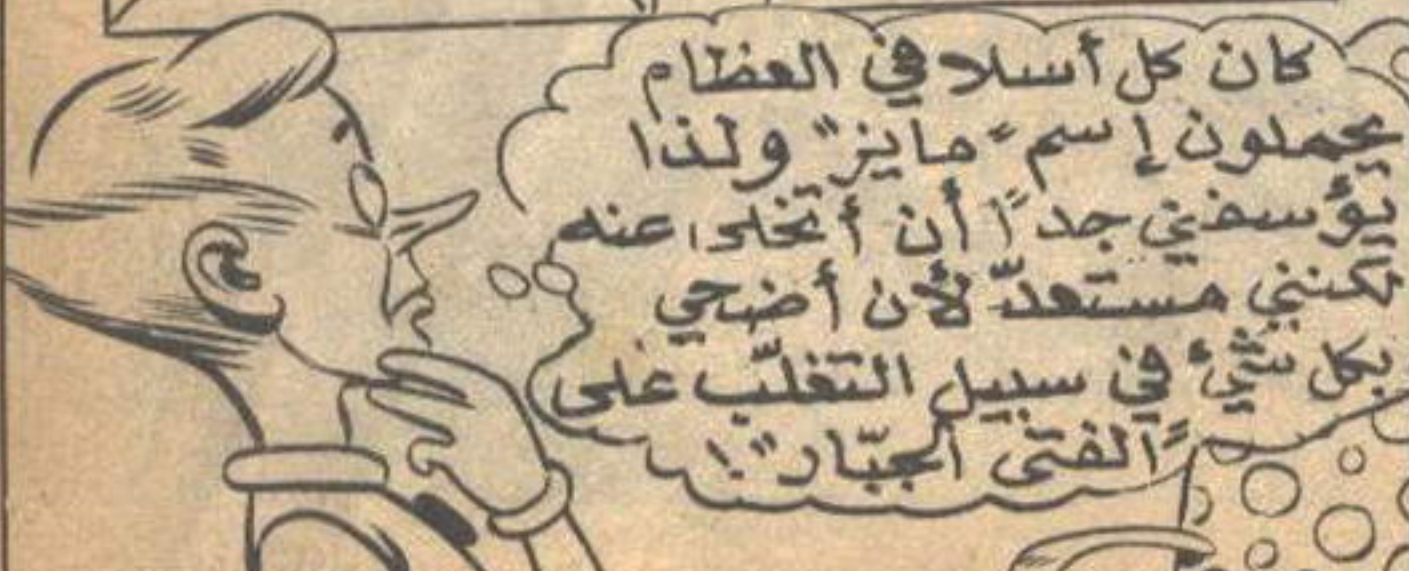 كان كل أسلافي العظام
يحملون إسم "مايز" ولذا
يؤسفني جداً أن أتخلى عنه
لكنني مستعدّ لأن أضحي
بكل شيء في سبيل التغلّب على
"الفتى الجبّار"!